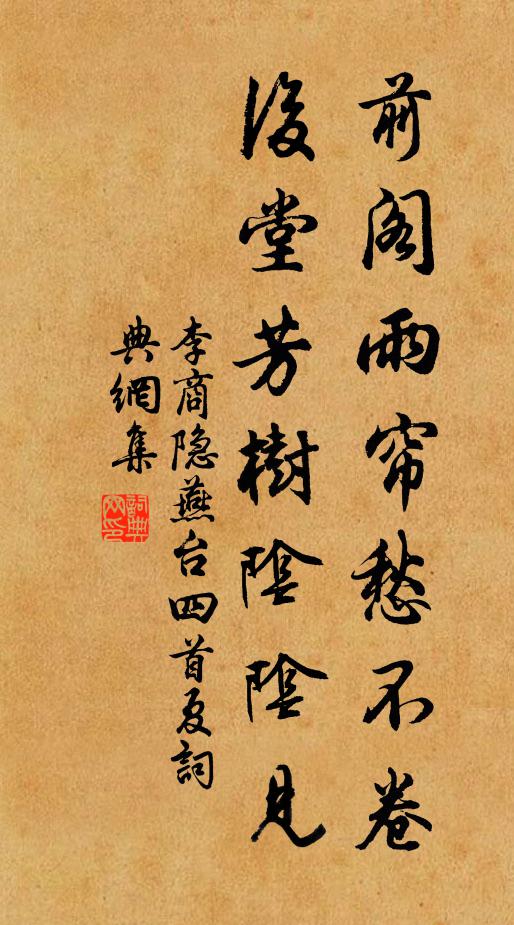 前阁雨帘愁不卷
後堂芳樹陰陰見
李商隐燕台四首夏詞
典網集
詞典網印